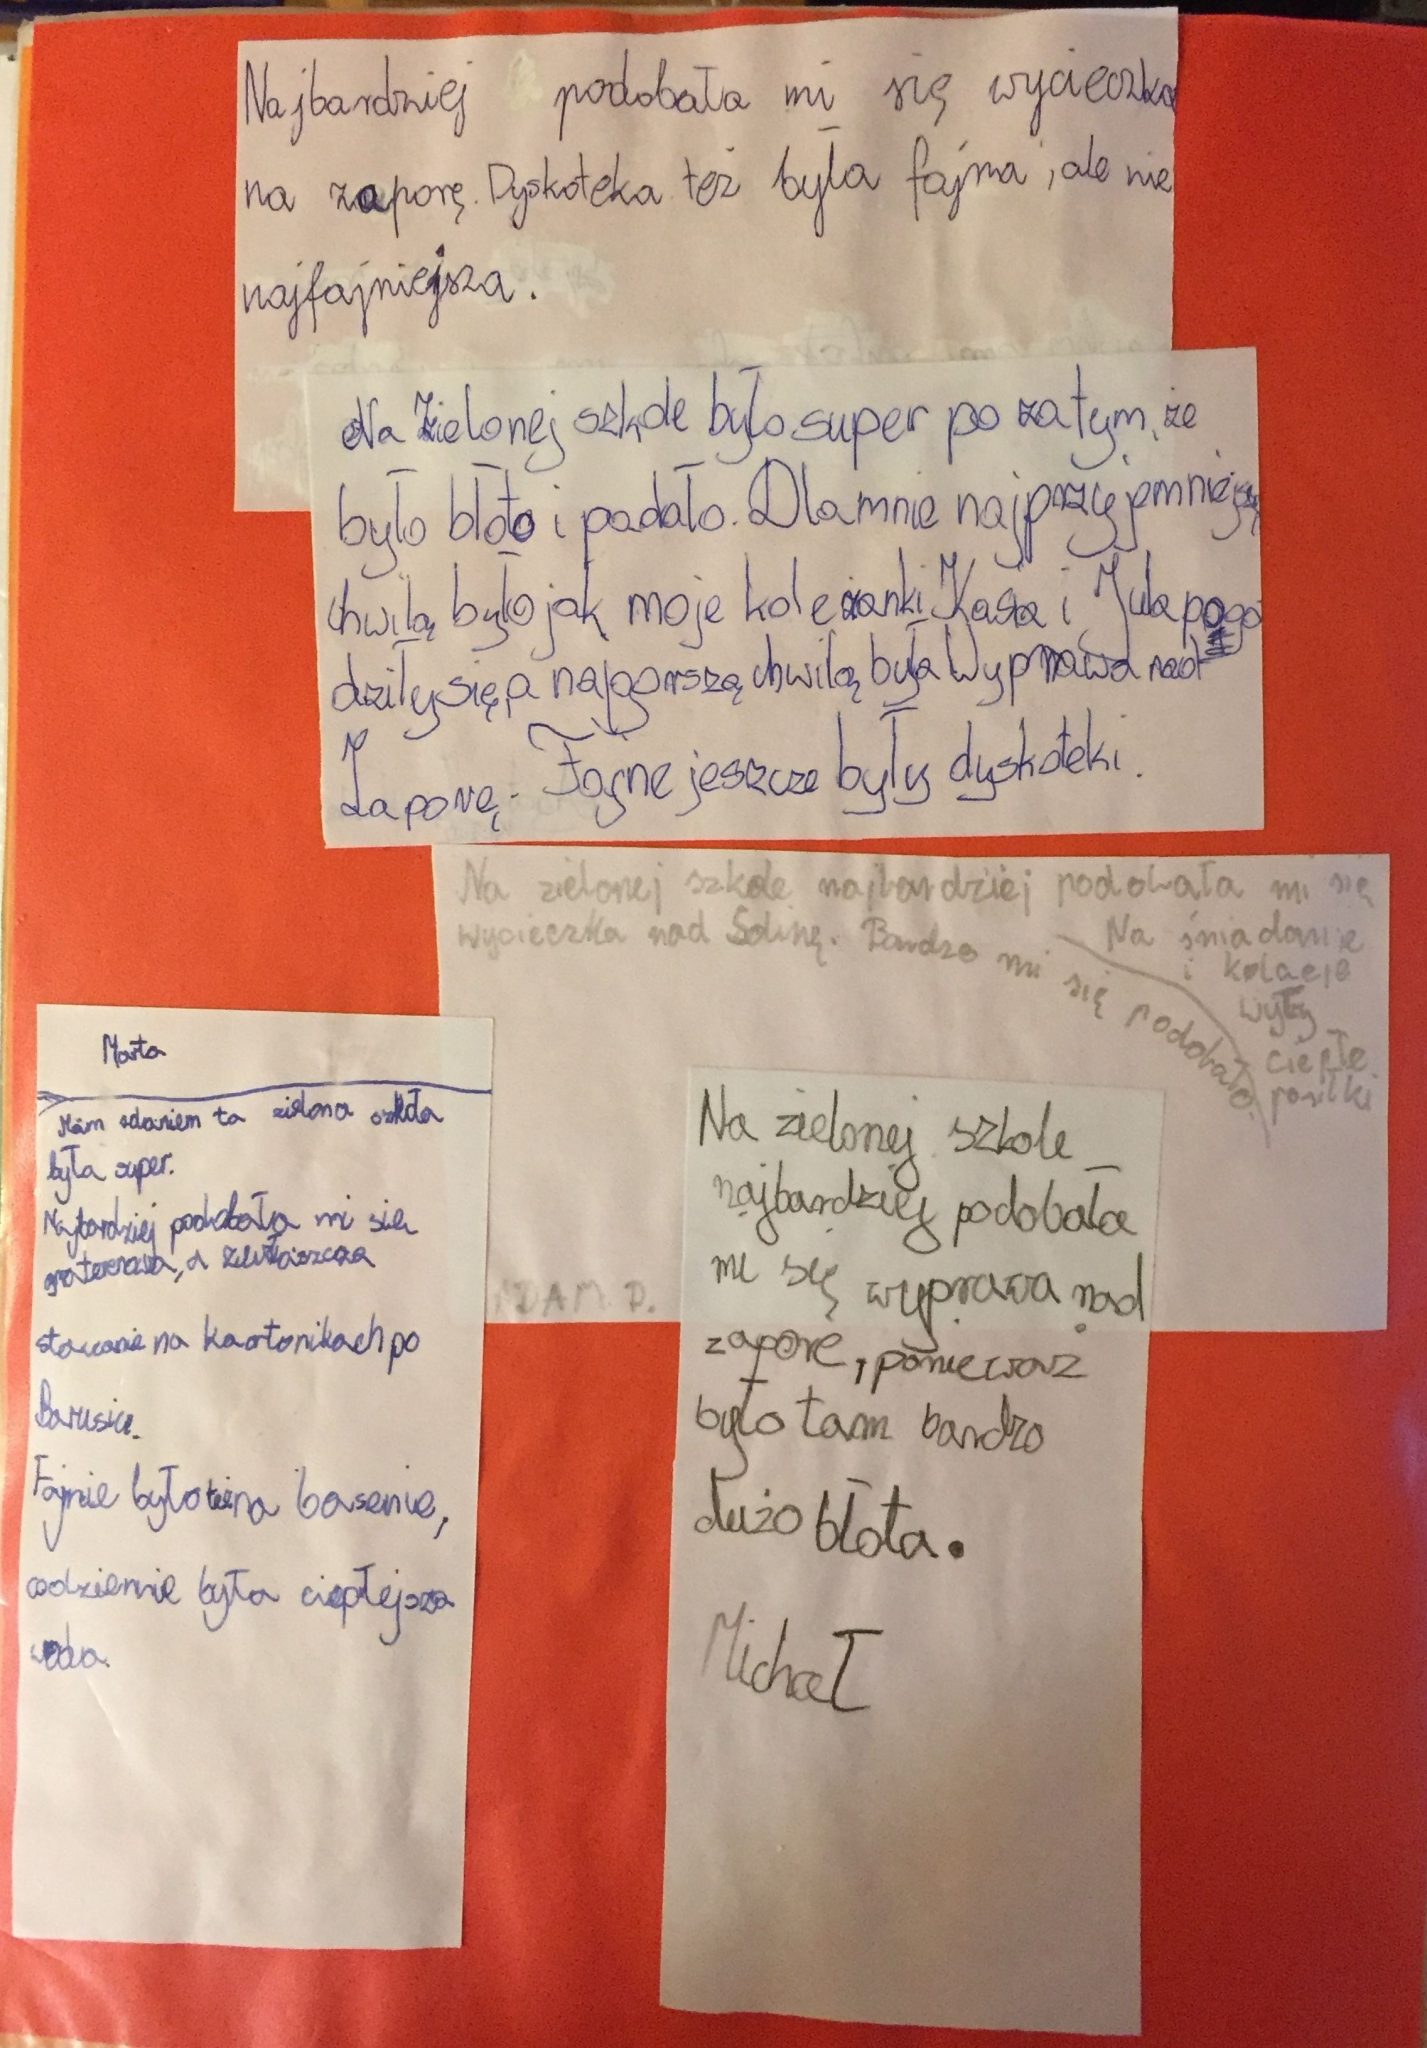 Najbardziej podobała mi się wycieczka
na zaporę. Dyskoteka też była fajna, ale nie
najfajniejsza.
Na Zielonej szkole było super po za tym, że
było błoto i padało. Dla mnie najprzyjemniejszą
chwilą było jak moje koleżanki Kasia i Jula pogo
dziły się, a najgorszą chwilą była Wyprawa nad
Zaporę. Fajne jeszcze były dyskoteki.
Na zielonej szkole najbardziej podobała mi się
wycieczka nad Solinę. Bardzo mi się podobało.
Na śniadanie
i kolacje
były
ciepłe
posiłki
ADAM D.
Marta
Moim zdaniem ta zielona szkoła
była super.
Najbardziej podobała mi się
a zwłaszcza
na kartonikach po
Fajnie było też na basenie,
codziennie była cieplejsza
woda.
Na zielonej szkole
najbardziej podobała
mi się wyprawa nad
zaporę, ponieważ
było tam bardzo
dużo błota.
Michał